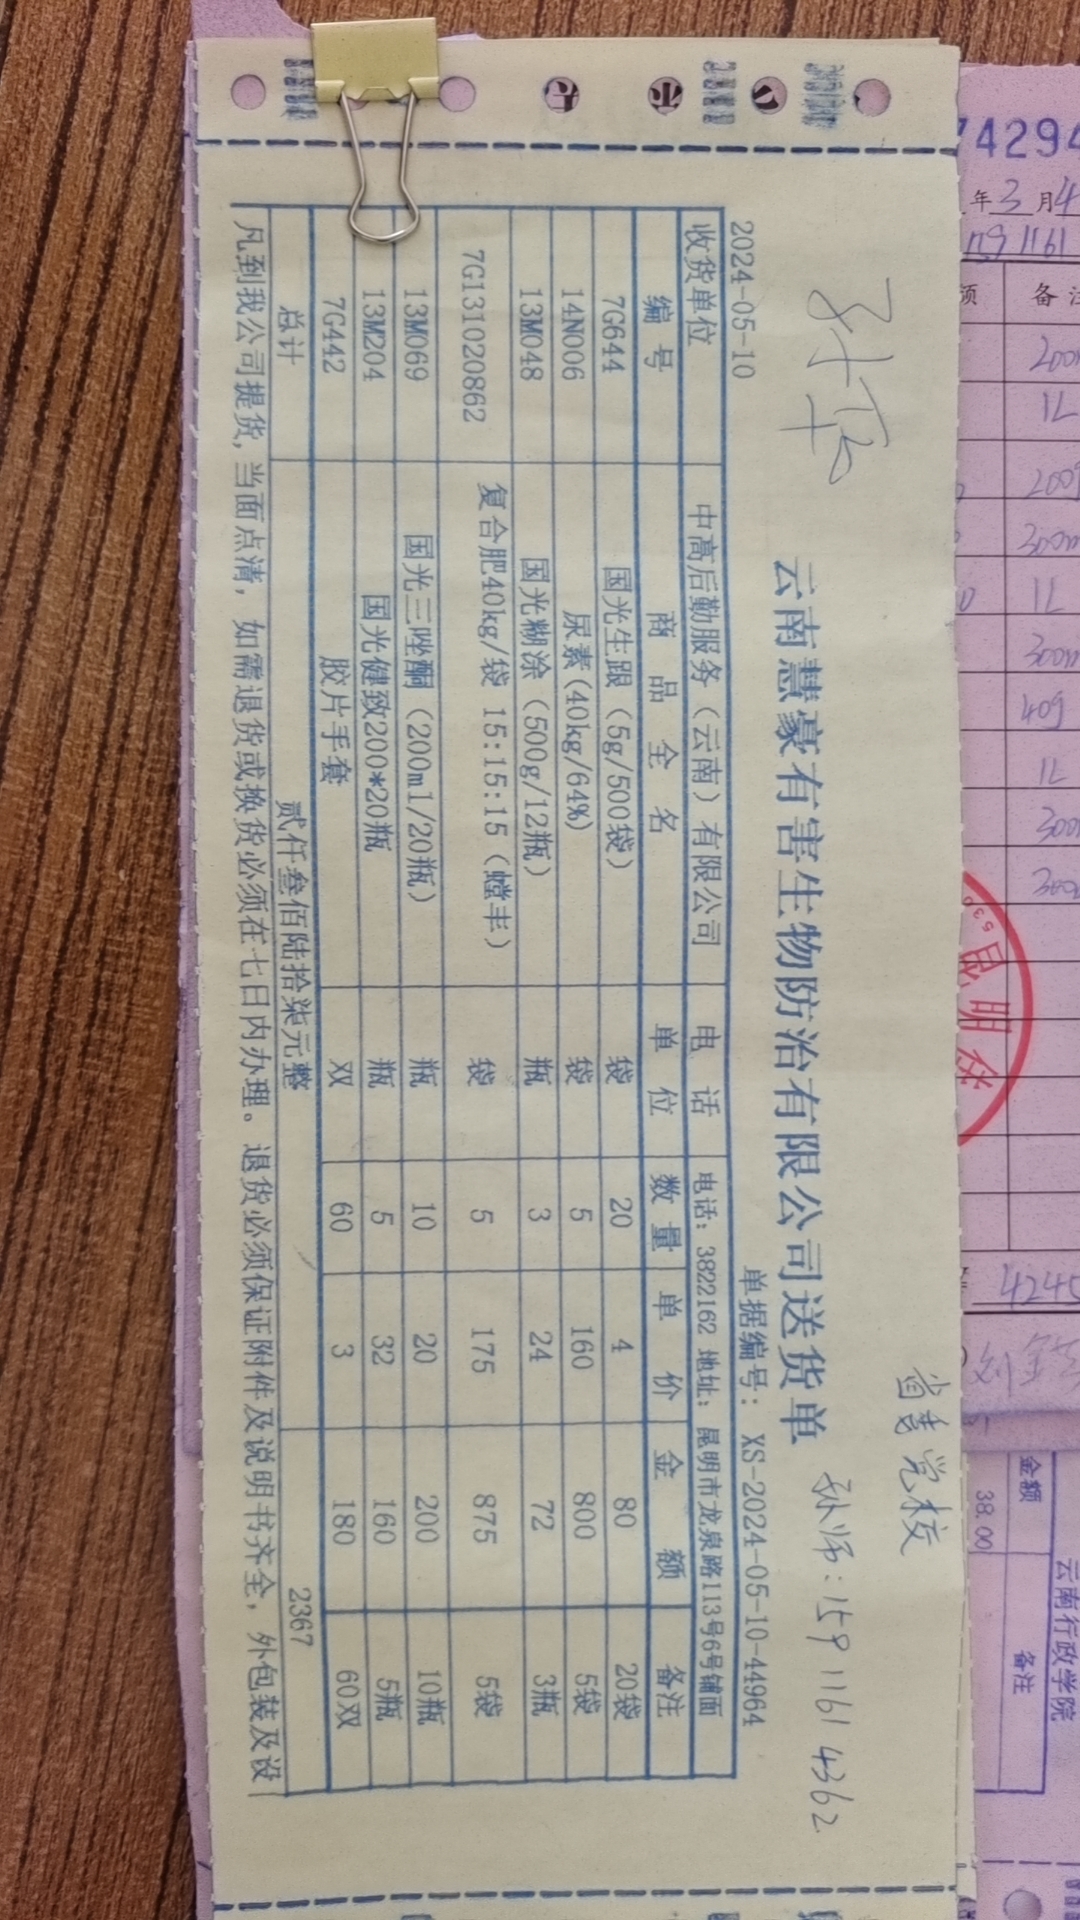 省委党校
云南慧豪有害生物防治有限公司送货单 孙师:159 1161 4362
2024-05-10 单据编号: XS-2024-05-10-44964
收货单位 中高后勤服务(云南)有限公司 电 话 电话: 3822162 地址: 昆明市龙泉路113号6号铺面
编 号 商 品 全 名 单 位 数 量 单 价 金 额 备注
7G644 国光生跟(5g/500袋) 袋 20 4 80 20袋
14N006 尿素(40kg/64%) 袋 5 160 800 5袋
13M048 国光糊涂(500g/12瓶) 瓶 3 24 72 3瓶
7G131020862 复合肥40kg/袋 15:15:15(螳丰) 袋 5 175 875 5袋
13M069 国光三唑酮(200ml/20瓶) 瓶 10 20 200 10瓶
13M204 国光健致200*20瓶 瓶 5 32 160 5瓶
7G442 胶片手套 双 60 3 180 60双
总计 贰仟叁佰陆拾柒元整 2367
凡到我公司提货,当面点清,如需退货或换货必须在七日内办理。退货必须保证附件及说明书齐全,外包装及设
74294
年3月4
1161
额 备注
200m
1L
200g
300m
1L
300m
40g
1L
300m
300m
昆明
530
4245
云南行政学院
金额 备注
38.00